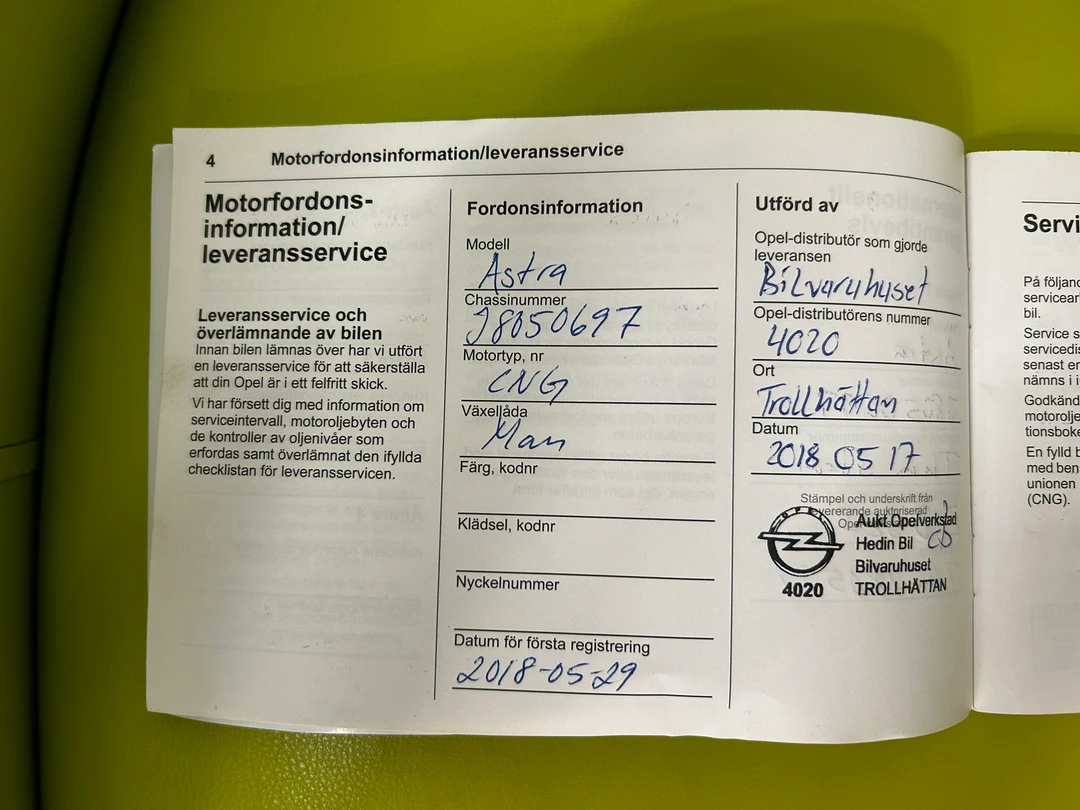 4 Motorfordonsinformation/leveransservice
Motorfordons-
information/
leveransservice
Leveransservice och
överlämnande av bilen
Innan bilen lämnas över har vi utfört
en leveransservice för att säkerställa
att din Opel är i ett felfritt skick.
Vi har försett dig med information om
serviceintervall, motoroljebyten och
de kontroller av oljenivåer som
erfordas samt överlämnat den ifyllda
checklistan för leveransservicen.
Fordonsinformation
Modell
Astra
Chassinummer
J8050697
Motortyp, nr
CNG
Växellåda
Man
Färg, kodnr
Klädsel, kodnr
Nyckelnummer
Datum för första registrering
2018-05-29
Utförd av
Opel-distributör som gjorde
leveransen
Bilvaruhuset
Opel-distributörens nummer
4020
Ort
Trollhättan
Datum
2018 05 17
Stämpel och underskrift från
levererande auktoriserad
OPEL
Aukt Opelverkstad
Hedin Bil
Bilvaruhuset
4020 TROLLHÄTTAN
Servi
På följand
servicear
bil.
Service s
servicedis
senast er
nämns i i
Godkänd
motoroljе
tionsboke
En fylld b
med ben
unionen
(CNG).